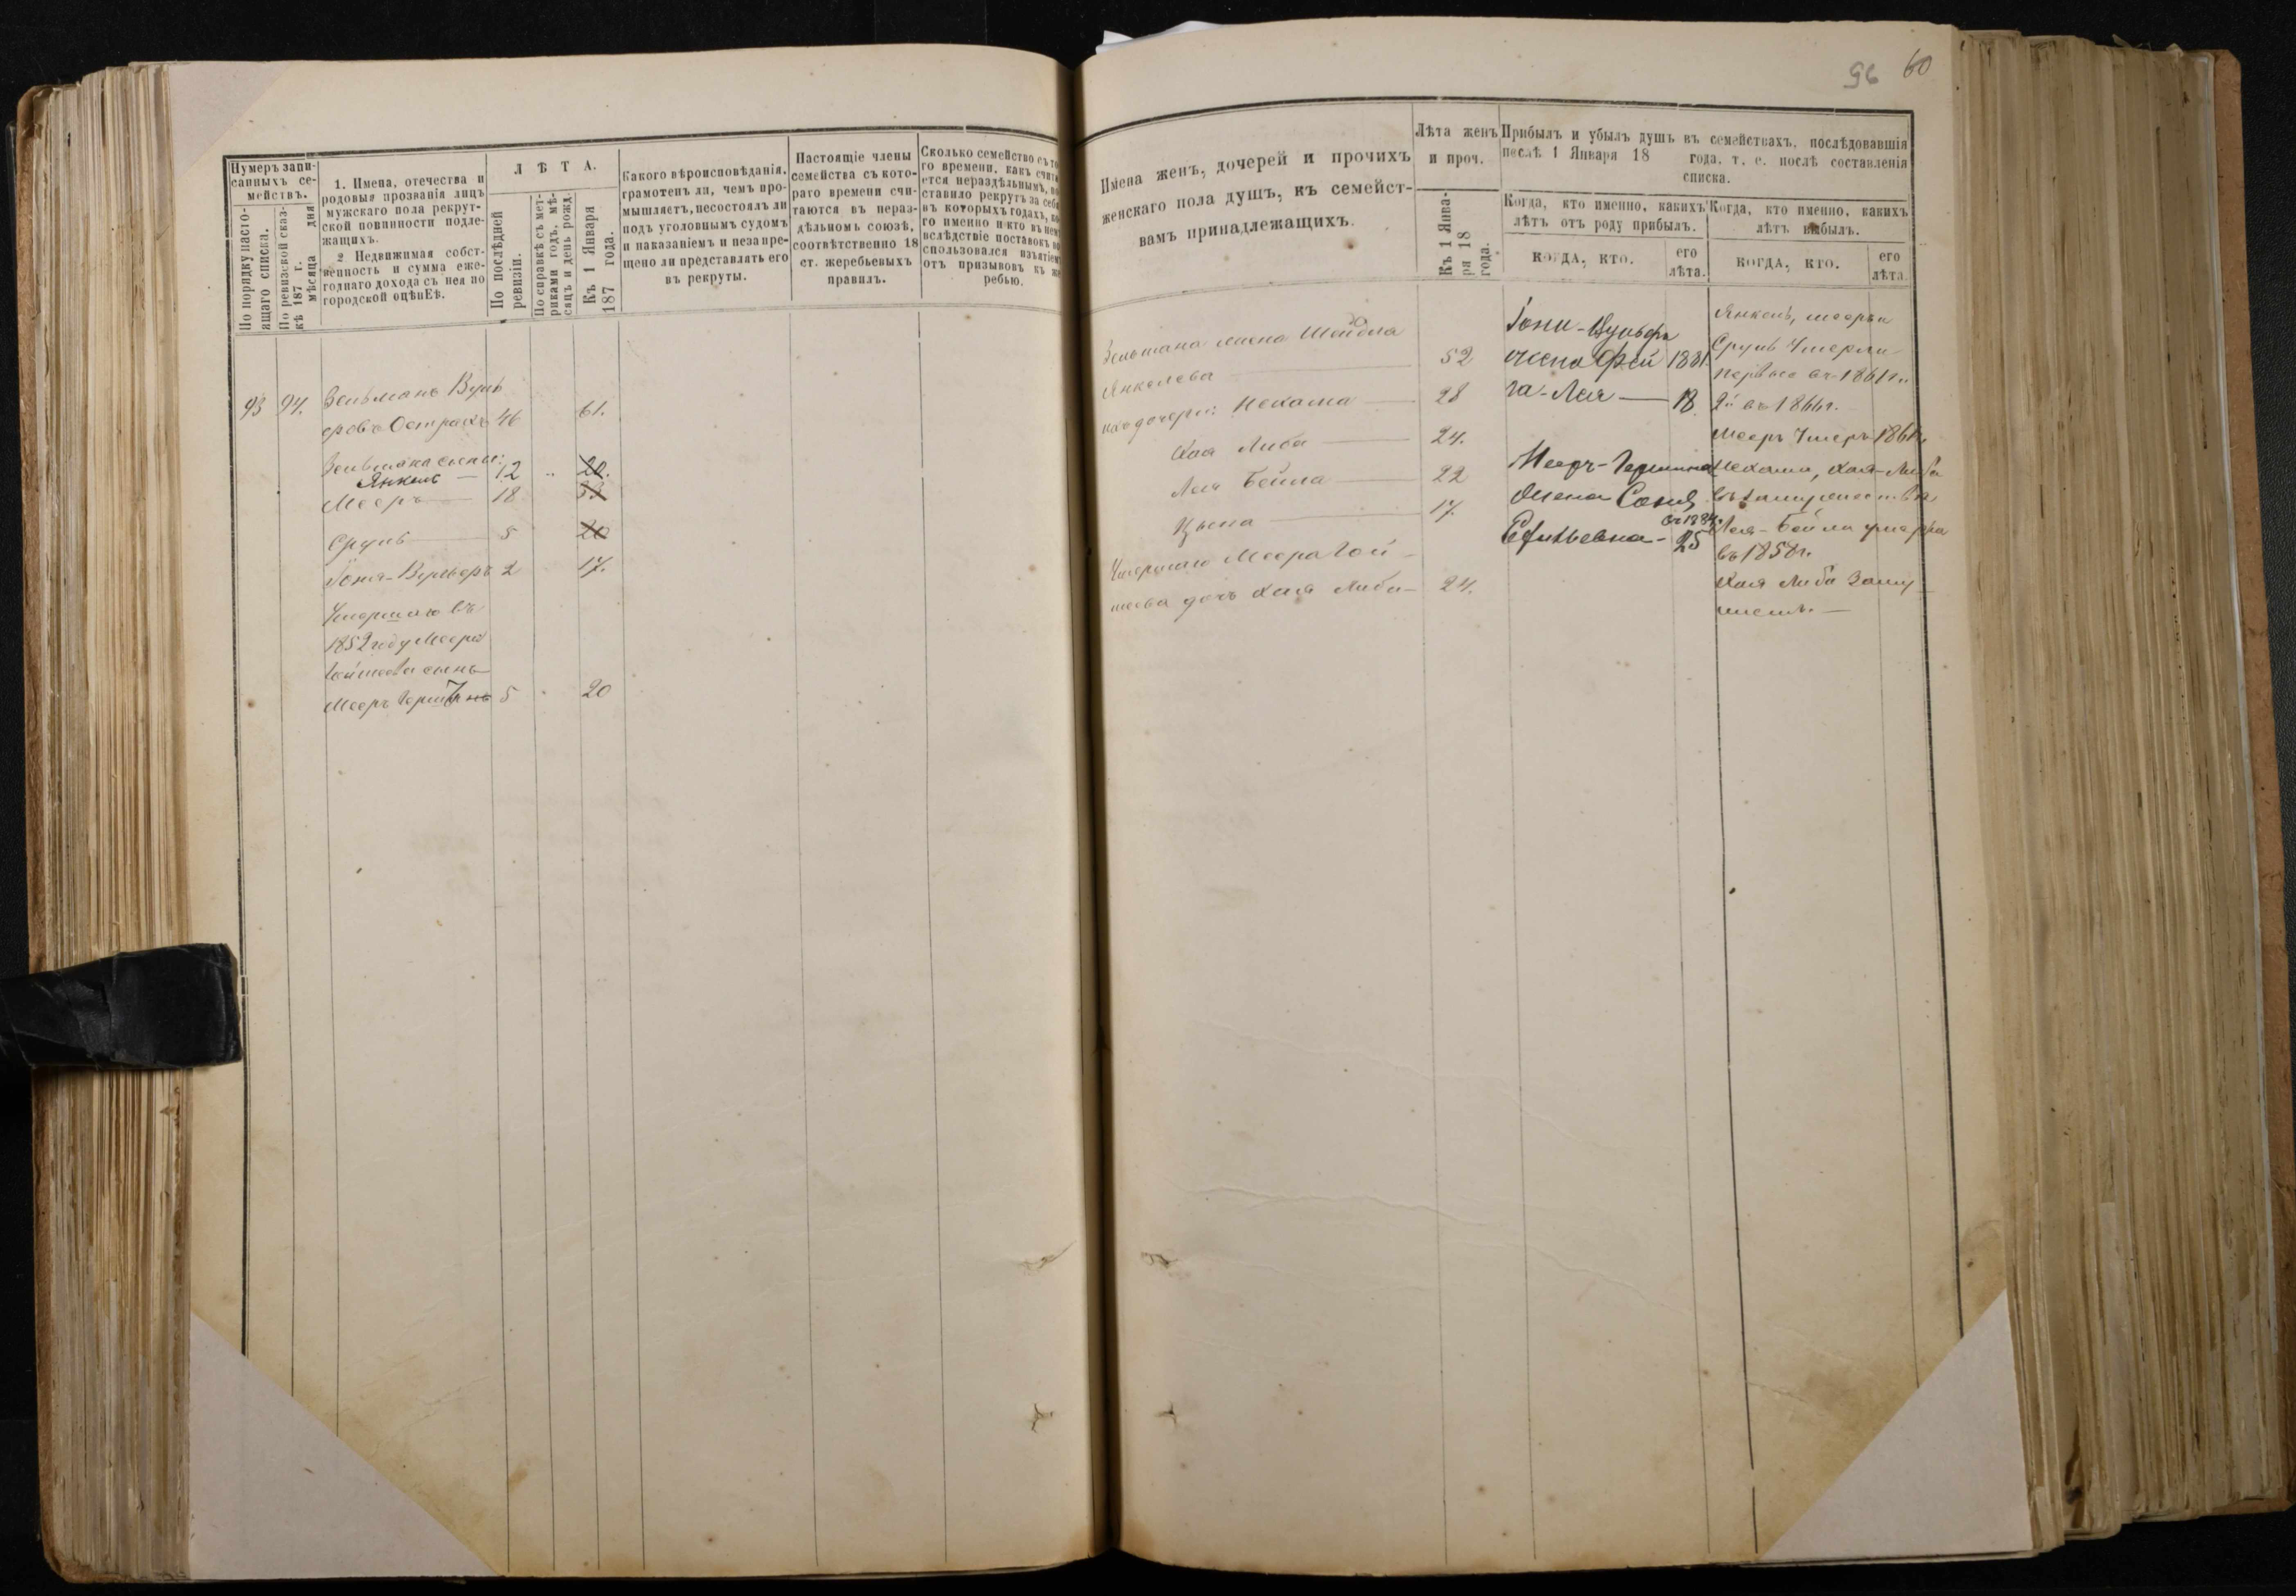 Нумеръ запи-
санныхъ се-
мействъ.
По порядку насто-
ящаго списка.
По ревизской сказ-
кѣ 187 г.
мѣсяца дня
1. Имена, отечества и
родовыя прозванія лицъ
мужскаго пола рекрут-
ской повинности подле-
жащихъ.
2 Недвижимая собст-
венность и сумма еже-
годнаго дохода съ нея по
городской оцѣнЕѣ.
ЛѢТА.
По послѣдней
ревизіи.
По справкѣ съ мет-
риками годъ, мѣ-
сяцъ и день рожд.
Къ 1 Января
187 года.
Какого вѣроисповѣданія,
грамотенъ ли, чемъ про-
мышляетъ, несостоялъ ли
подъ уголовнымъ судомъ
и наказаніемъ и незапре-
щено ли представлять его
въ рекруты.
Настоящіе члены
семейства съ кото-
раго времени счи-
таются въ нераз-
дѣльномъ союзѣ,
соотвѣтственно 18
ст. жеребьевыхъ
правилъ.
Сколько семейство съ то
го времени, какъ счита
ется нераздѣльнымъ, по
ставило рекрутъ за себя
въ которыхъ годахъ, ко
го именно и кто въ нем
вслѣдствіе поставокъ во
спользовался изъятіем
отъ призывовъ къ же
ребью.
93 94. Зельманъ Вуль
фовъ Острахъ 46 61.
Зельмана сыны:
Янкель — 12 " 20.
Мееръ — 18 33
Сруль — 5 20
Іоня-Вульфъ 2 17.
Умершаго въ
1852 году Меера
сынъ
Мееръ Герш 5 20
96 60
Имена женъ, дочерей и прочихъ
женскаго пола душъ, къ семейст-
вамъ принадлежащихъ.
Лѣта женъ
и проч.
Къ 1 Янва-
ря 18
года.
Прибылъ и убылъ душъ въ семействахъ, послѣдовавшія
песлѣ 1 Января 18 года, т. е. послѣ составленія
списка.
Когда, кто именно, какихъ
лѣтъ отъ роду прибылъ.
КОГДА, КТО.
его
лѣта.
Когда, кто именно, какихъ
лѣтъ выбылъ.
КОГДА, КТО.
его
лѣта.
Зельмана жена Шейдла
Янкелева — 52
ихъ дочери: Нехама — 28
Хая Либа — 24.
Лея Бейла — 22
Цысна — 17.
Умершаго Меера Гой-
шева дочь Хая Либа — 24.
Іони-Вульфа
жена Фей 1881
га-Лея — 18
Меера-Гершина
жена Соня
въ 1884г.
Ефильевна - 25
Янкель, Мееръ и
Сруль Умерли
первые въ 1861г.
2й въ 1866г.
Мееръ Умеръ 1861г.
Нехама, Хая-Либа
въ замужества,
Лея-Бейла умерла
въ 1858г.
Хая Либа Заму
жемъ. —